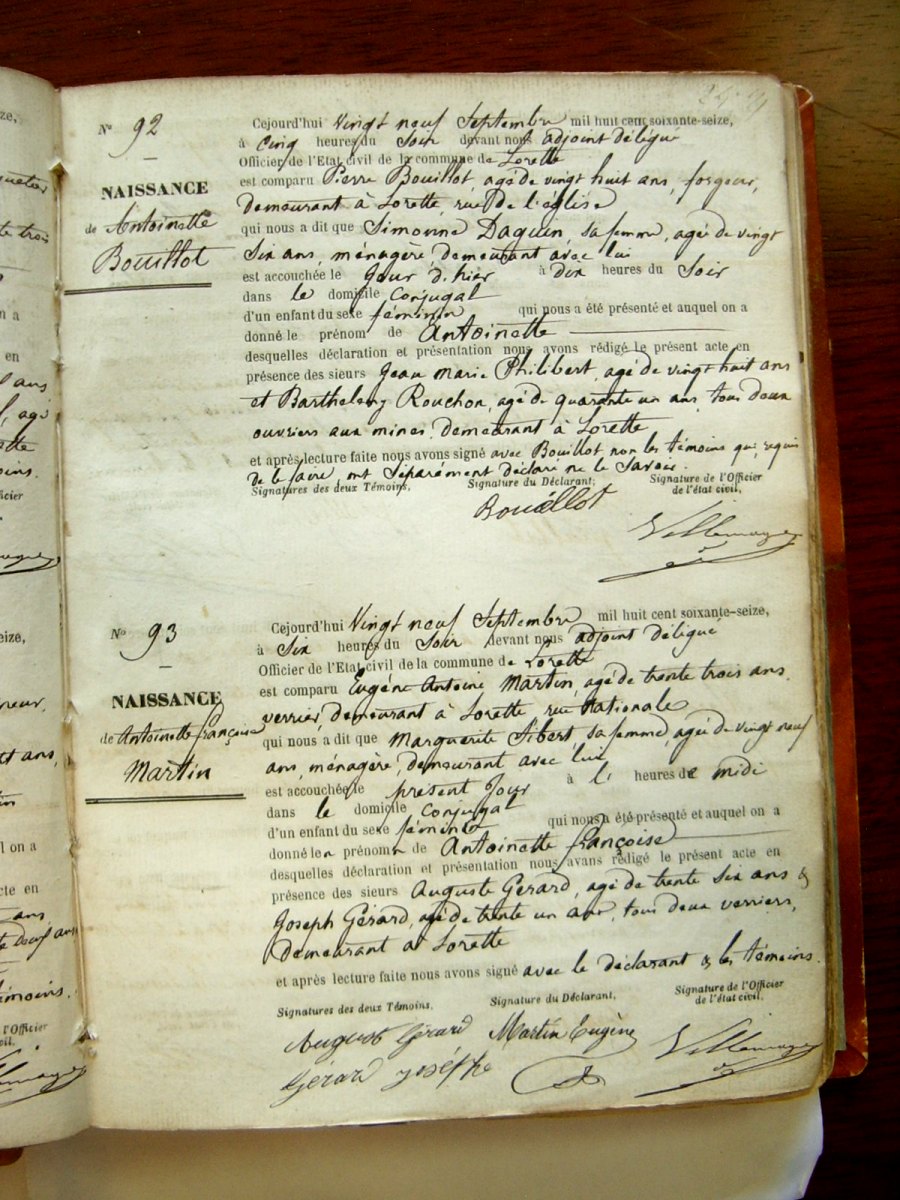 Nº 92
NAISSANCE
de Antoinette
Bouillot
Cejourd'hui Vingt neuf Septembre mil huit cent soixante-seize,
à Cinq heures du Soir devant nous adjoint délégué
Officier de l'Etat civil de la commune de Lorette
est comparu Pierre Bouillot, agé de vingt huit ans, forgeur,
demeurant à Lorette, rue de l'eglise
qui nous a dit que Simonne Daguin, sa femme, agée de vingt
Six ans, ménagère, demeurant avec lui
est accouchée le Jour d'hier à dix heures du Soir
dans le domicile Conjugal
d'un enfant du sexe féminin qui nous a été présenté et auquel on a
donné le prénom de Antoinette
desquelles déclaration et présentation nous avons rédigé le présent acte en
présence des sieurs Jean Marie Philibert, agé de vingt huit ans
et Barthelemy Rouchon, agé de quarante un ans, tous deux
ouvriers aux mines, demeurant à Lorette
et après lecture faite nous avons signé avec Bouillot non les témoins qui, requis
de le faire, ont Séparément déclaré ne le Savoir.
Signatures des deux Témoins, Signature du Déclarant, Signature de l'Officier
de l'état civil,
Bouillot
Villemagne
Nº 93
NAISSANCE
de Antoinette françoise
Martin
Cejourd'hui Vingt neuf Septembre mil huit cent soixante-seize,
à Six heures du Soir devant nous adjoint délégué
Officier de l'Etat civil de la commune de Lorette
est comparu Eugéne Antoine Martin, agé de trente trois ans
verrier, demeurant à Lorette, rue Nationale
qui nous a dit que Marguerite Sibert sa femme, agée de vingt neuf
ans, ménagère, demeurant avec lui
est accouchée le présent Jour à l' heures de midi
dans le domicile Conjugal
d'un enfant du sexe féminin qui nous a été présenté et auquel on a
donné les prénoms de Antoinette françoise
desquelles déclaration et présentation nous avons rédigé le présent acte en
présence des sieurs Auguste Gérard, agé de trente Six ans &
Joseph Gérard, agé de trente un ans, tous deux verriers,
demeurant à Lorette
et après lecture faite nous avons signé avec le déclarant & les témoins.
Signatures des deux Témoins, Signature du Déclarant, Signature de l'Officier
de l'état civil,
August Gérard Martin Eugène
Gérard Joséphe
Villemagne